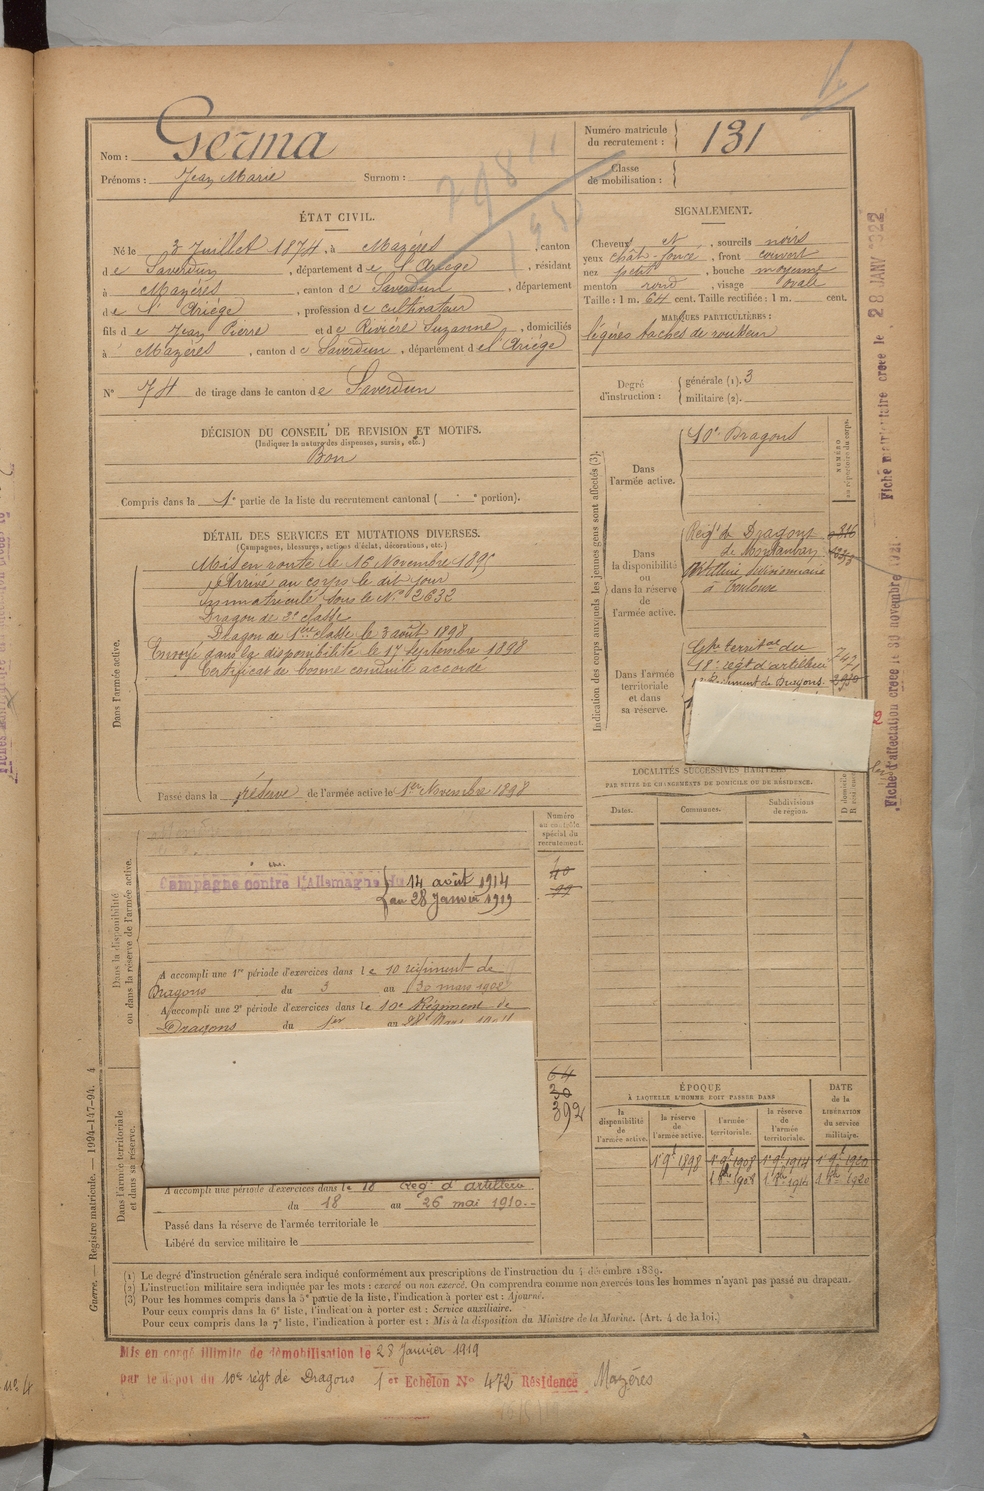 Nom : Germa
Prénoms : Jean Marie Surnom :
Numéro matricule du recrutement : 131
Classe de mobilisation :
ÉTAT CIVIL.
Né le 3 Juillet 1874, à Mazéres, canton
de Saverdun, département de l'Ariège, résidant
à Mazéres, canton de Saverdun, département
de l'Ariége, profession de cultivateur
fils de Jean Pierre et de Riviére Suzanne, domiciliés
à Mazéres, canton de Saverdun, département de l'Ariége
N° 74 de tirage dans le canton de Saverdun
SIGNALEMENT.
Cheveux et, sourcils noirs
yeux chât-foncé, front couvert
nez petit, bouche moyenne
menton rond, visage ovale
Taille : 1 m. 64 cent. Taille rectifiée : 1 m. cent.
MARQUES PARTICULIÈRES :
légéres taches de rousseur
Degré d'instruction : générale (1). 3
militaire (2).
DÉCISION DU CONSEIL DE REVISION ET MOTIFS.
(Indiquer la nature des dispenses, sursis, etc.)
Bon
Compris dans la 1e partie de la liste du recrutement cantonal ( e portion).
DÉTAIL DES SERVICES ET MUTATIONS DIVERSES.
(Campagnes, blessures, actions d'éclat, décorations, etc.)
Dans l'armée active.
Mis en route le 16 Novembre 1895
Arrivé au corps le dit jour
immatriculé sous le N° 2632
Dragon de 2e classe
Dragon de 1ère classe le 3 août 1898
Envoyé dans la disponibilité le 17 Septembre 1898
Certificat de bonne conduite accordé
Passé dans la réserve de l'armée active le 1er Novembre 1898
Indication des corps auxquels les jeunes gens sont affectés (3).
NUMÉRO au répertoire du corps.
Dans l'armée active.
10e Dragons
Dans la disponibilité ou dans la réserve de l'armée active.
Régt de Dragons
de Montauban
Artillerie divisionnaire
à Toulouse
Dans l'armée territoriale et dans sa réserve.
Gpe territal du
18e régt d'artillerie
Régiment de Dragons.
LOCALITÉS SUCCESSIVES HABITÉES
PAR SUITE DE CHANGEMENTS DE DOMICILE OU DE RÉSIDENCE.
Dates.
Communes.
Subdivisions de région.
D domicile
Dans la disponibilité ou dans la réserve de l'armée active.
Numéro au contrôle spécial du recrutement.
40
99
Campagne contre l'Allemagne du 14 août 1914
au 28 Janvier 1919
A accompli une 1re période d'exercices dans le 10 régiment de
Dragons du 3 au 30 mars 1902
A accompli une 2e période d'exercices dans le 10e Régiment de
Dragons du 1er au 28 Mars
Dans l'armée territoriale et dans sa réserve.
64
30
392
A accompli une période d'exercices dans le 18 Reg. d'artillerie
du 18 au 26 mai 1910
Passé dans la réserve de l'armée territoriale le
Libéré du service militaire le
ÉPOQUE
À LAQUELLE L'HOMME DOIT PASSER DANS
la disponibilité de l'armée active.
la réserve de l'armée active.
l'armée territoriale.
la réserve de l'armée territoriale.
DATE de la LIBÉRATION du service militaire.
1er 9bre 1898
1er 9bre 1908
1er 9bre 1914
1er 9bre 1920
(1) Le degré d'instruction générale sera indiqué conformément aux prescriptions de l'instruction du 4 décembre 1889.
(2) L'instruction militaire sera indiquée par les mots : exercé ou non exercé. On comprendra comme non exercés tous les hommes n'ayant pas passé au drapeau.
(3) Pour les hommes compris dans la 5e partie de la liste, l'indication à porter est : Ajourné.
Pour ceux compris dans la 6e liste, l'indication à porter est : Service auxiliaire.
Pour ceux compris dans la 7e liste, l'indication à porter est : Mis à la disposition du Ministre de la Marine. (Art. 4 de la loi.)
Mis en congé illimité de démobilisation le 28 Janvier 1919
par le dépôt du 10e régt de Dragons 1er Echelon N° 472 Résidence Mazéres
Guerre. — Registre matricule. — 1094-147-94. 4
Fiche matriculaire créée le 28 JANV 1922
Fiche d'affectation créée le 30 novembre 1921